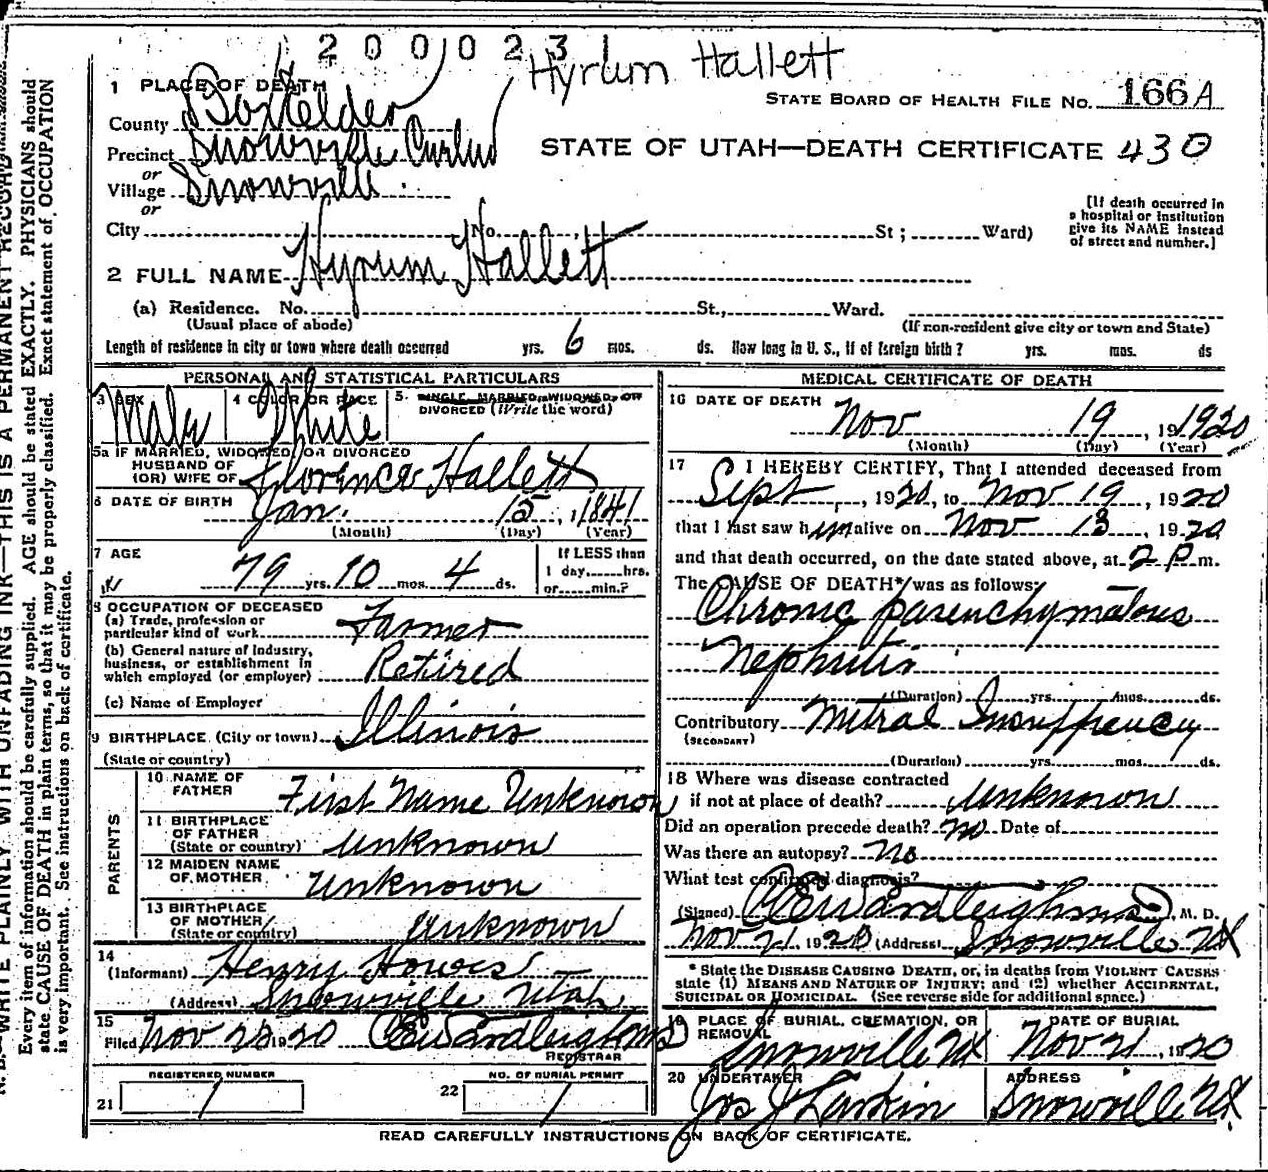 2000231
Hyrum Hallett
1 PLACE OF DEATH
STATE BOARD OF HEALTH FILE NO. 166A
County Boxelder
Precinct Snowville Curlew
STATE OF UTAH—DEATH CERTIFICATE 430
or
Village Snowville
or
[If death occurred in a hospital or institution give its NAME instead of street and number.]
City No. St; Ward)
2 FULL NAME Hyrum Hallett
(a) Residence. No. St., Ward.
(Usual place of abode) (If non-resident give city or town and State)
Length of residence in city or town where death occurred yrs. 6 mos. ds. How long in U. S., if of foreign birth? yrs. mos. ds
PERSONAL AND STATISTICAL PARTICULARS
3 SEX Male
4 COLOR OR RACE White
5. SINGLE, MARRIED, WIDOWED, OR DIVORCED (Write the word)
5a IF MARRIED, WIDOWED, OR DIVORCED
HUSBAND OF
(OR) WIFE OF Florence Hallett
6 DATE OF BIRTH Jan. 15, 1841
(Month) (Day) (Year)
7 AGE 79 yrs. 10 mos. 4 ds.
If LESS than 1 day,......hrs. or......min.?
8 OCCUPATION OF DECEASED
(a) Trade, profession or particular kind of work Farmer
(b) General nature of industry, business, or establishment in which employed (or employer) Retired
(c) Name of Employer
9 BIRTHPLACE (City or town) Illinois
(State or country)
PARENTS
10 NAME OF FATHER First Name Unknown
11 BIRTHPLACE OF FATHER (State or country) Unknown
12 MAIDEN NAME OF MOTHER Unknown
13 BIRTHPLACE OF MOTHER (State or country) Unknown
14
(Informant) Henry Howes
(Address) Snowville Utah
15
Filed Nov 22 1920
REGISTRAR
REGISTERED NUMBER
21 1
NO. OF BURIAL PERMIT
22 1
MEDICAL CERTIFICATE OF DEATH
16 DATE OF DEATH
Nov 19, 1920
(Month) (Day) (Year)
17 I HEREBY CERTIFY, That I attended deceased from
Sept, 1920, to Nov 19, 1920
that I last saw him alive on Nov 13, 1920
and that death occurred, on the date stated above, at 2 P m.
The CAUSE OF DEATH* was as follows:
Chronic parenchymatous
Nephritis
(Duration) yrs. mos. ds.
Contributory Mitral Insuffiency
(SECONDARY)
(Duration) yrs. mos. ds.
18 Where was disease contracted
if not at place of death? Unknown
Did an operation precede death? no Date of
Was there an autopsy? No
What test confirmed diagnosis?
(Signed) , M. D.
Nov 21, 1920 (Address) Snowville Ut
* State the DISEASE CAUSING DEATH, or, in deaths from VIOLENT CAUSES
state (1) MEANS AND NATURE OF INJURY; and (2) whether ACCIDENTAL,
SUICIDAL OR HOMICIDAL. (See reverse side for additional space.)
19 PLACE OF BURIAL, CREMATION, OR REMOVAL Snowville Ut
DATE OF BURIAL Nov 21, 1920
20 UNDERTAKER Jos J Larkin
ADDRESS Snowville Ut.
READ CAREFULLY INSTRUCTIONS ON BACK OF CERTIFICATE.
N. B.—WRITE PLAINLY WITH UNFADING INK—THIS IS A PERMANENT RECORD
Every item of information should be carefully supplied. AGE should be stated EXACTLY. PHYSICIANS should
state CAUSE OF DEATH in plain terms, so that it may be properly classified. Exact statement of OCCUPATION
is very important. See instructions on back of certificate.